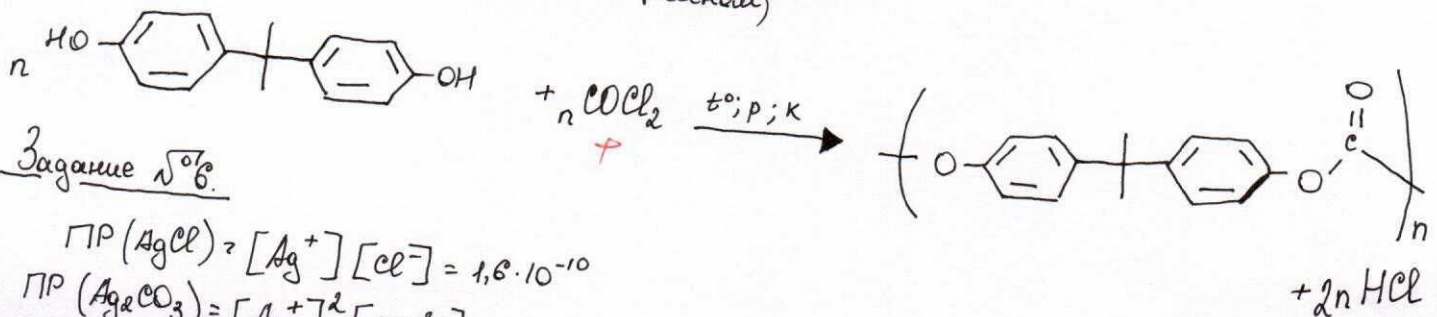 n HO OH + n COCl₂ t°; p; к O O C O n
+ 2n HCl
Задание №6.
ПР (AgCl) = [Ag⁺] [Cl⁻] = 1,6·10⁻¹⁰
ПР (Ag₂CO₃) = [Ag⁺]²